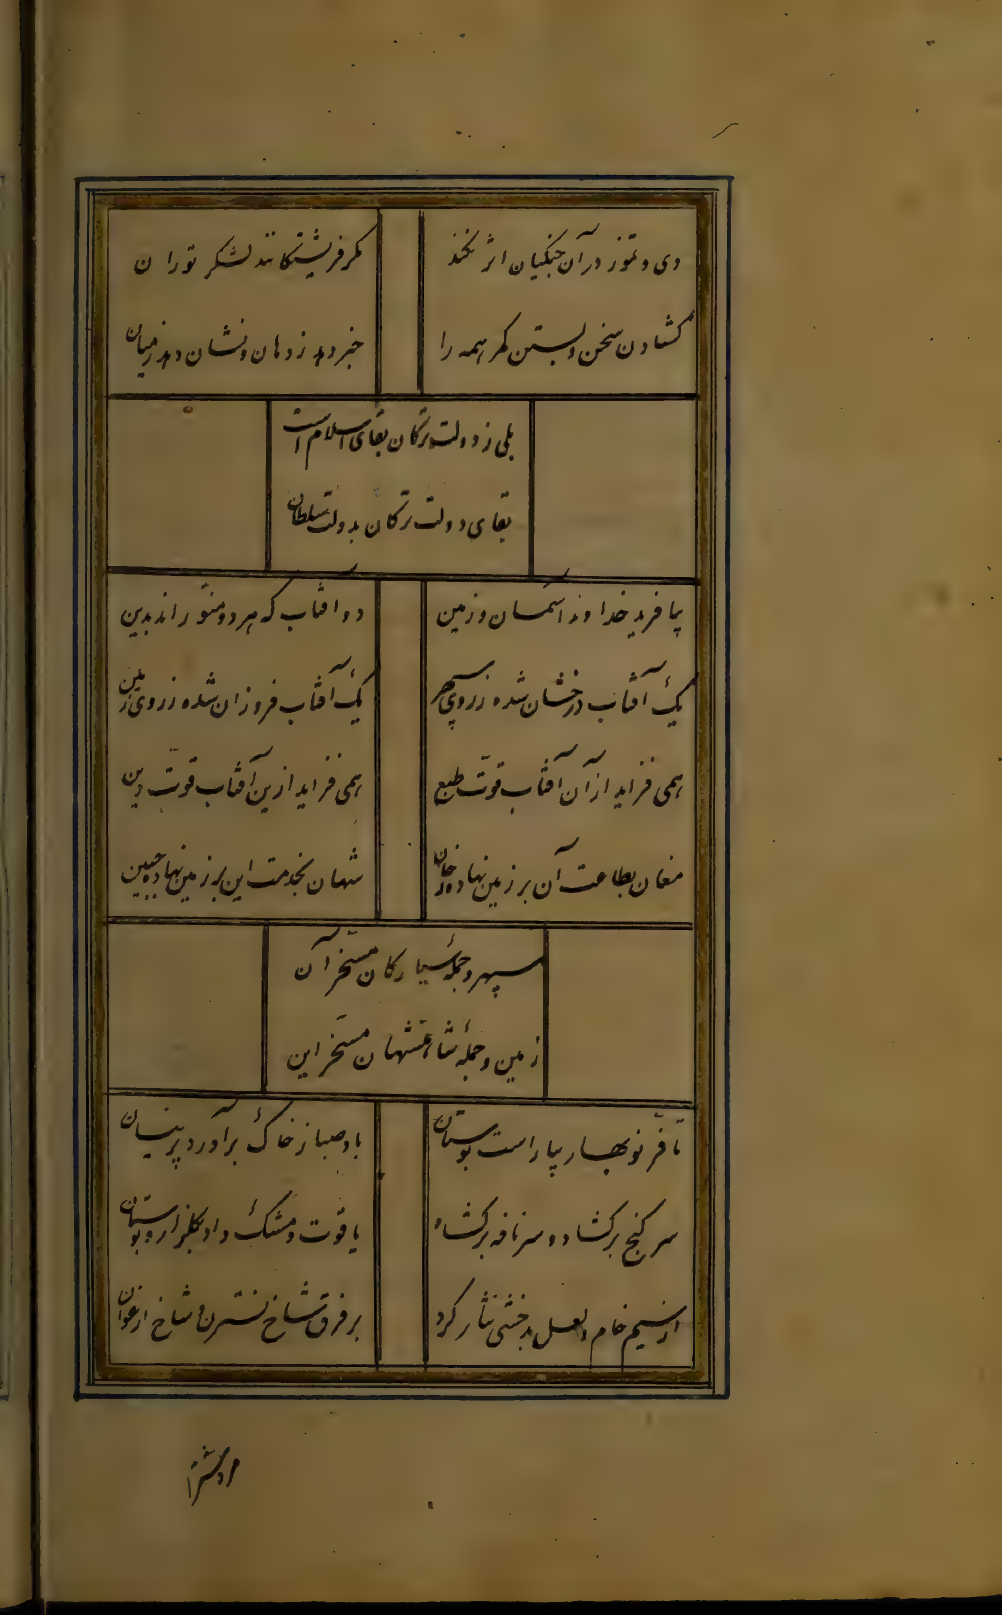 دی و تموز در آن جنگیان اثر نکند
مگر فریشتگانند لشکر توران
گشادن سخن و بستن کمر همه را
خبر دهد ز دهان و نشان دهد ز میان
بلی ز دولت ترکان بقای اسلام است
بقای دولت ترکان بدولت سلطان
بیافرید خداوند آسمان و زمین
دو آفتاب که هر دو منور اند بدین
یک آفتاب درخشان شده ز روی سپهر
یک آفتاب فروزان شده ز روی زمین
همی فزاید از آن آفتاب قوت طبع
همی فزاید ازین آفتاب قوت دین
مغان بطاعت آن بر زمین نهاده
شهان بخدمت این بر زمین نهاده جبین
سپهر و جملهٔ سیارکان مسخر آن
زمین و جملهٔ شاهنشهان مسخر این
تا فر نوبهار بیاراست بوستان
باد صبا ز خاک برآورد پرنیان
سر گنج برگشاد و سر نافه برگشاد
یاقوت و مشک داد بگلزار و بوستان
از سیم خام و لعل بدخشی نثار کرد
بر فرق شاخ نسترن و شاخ ارغوان